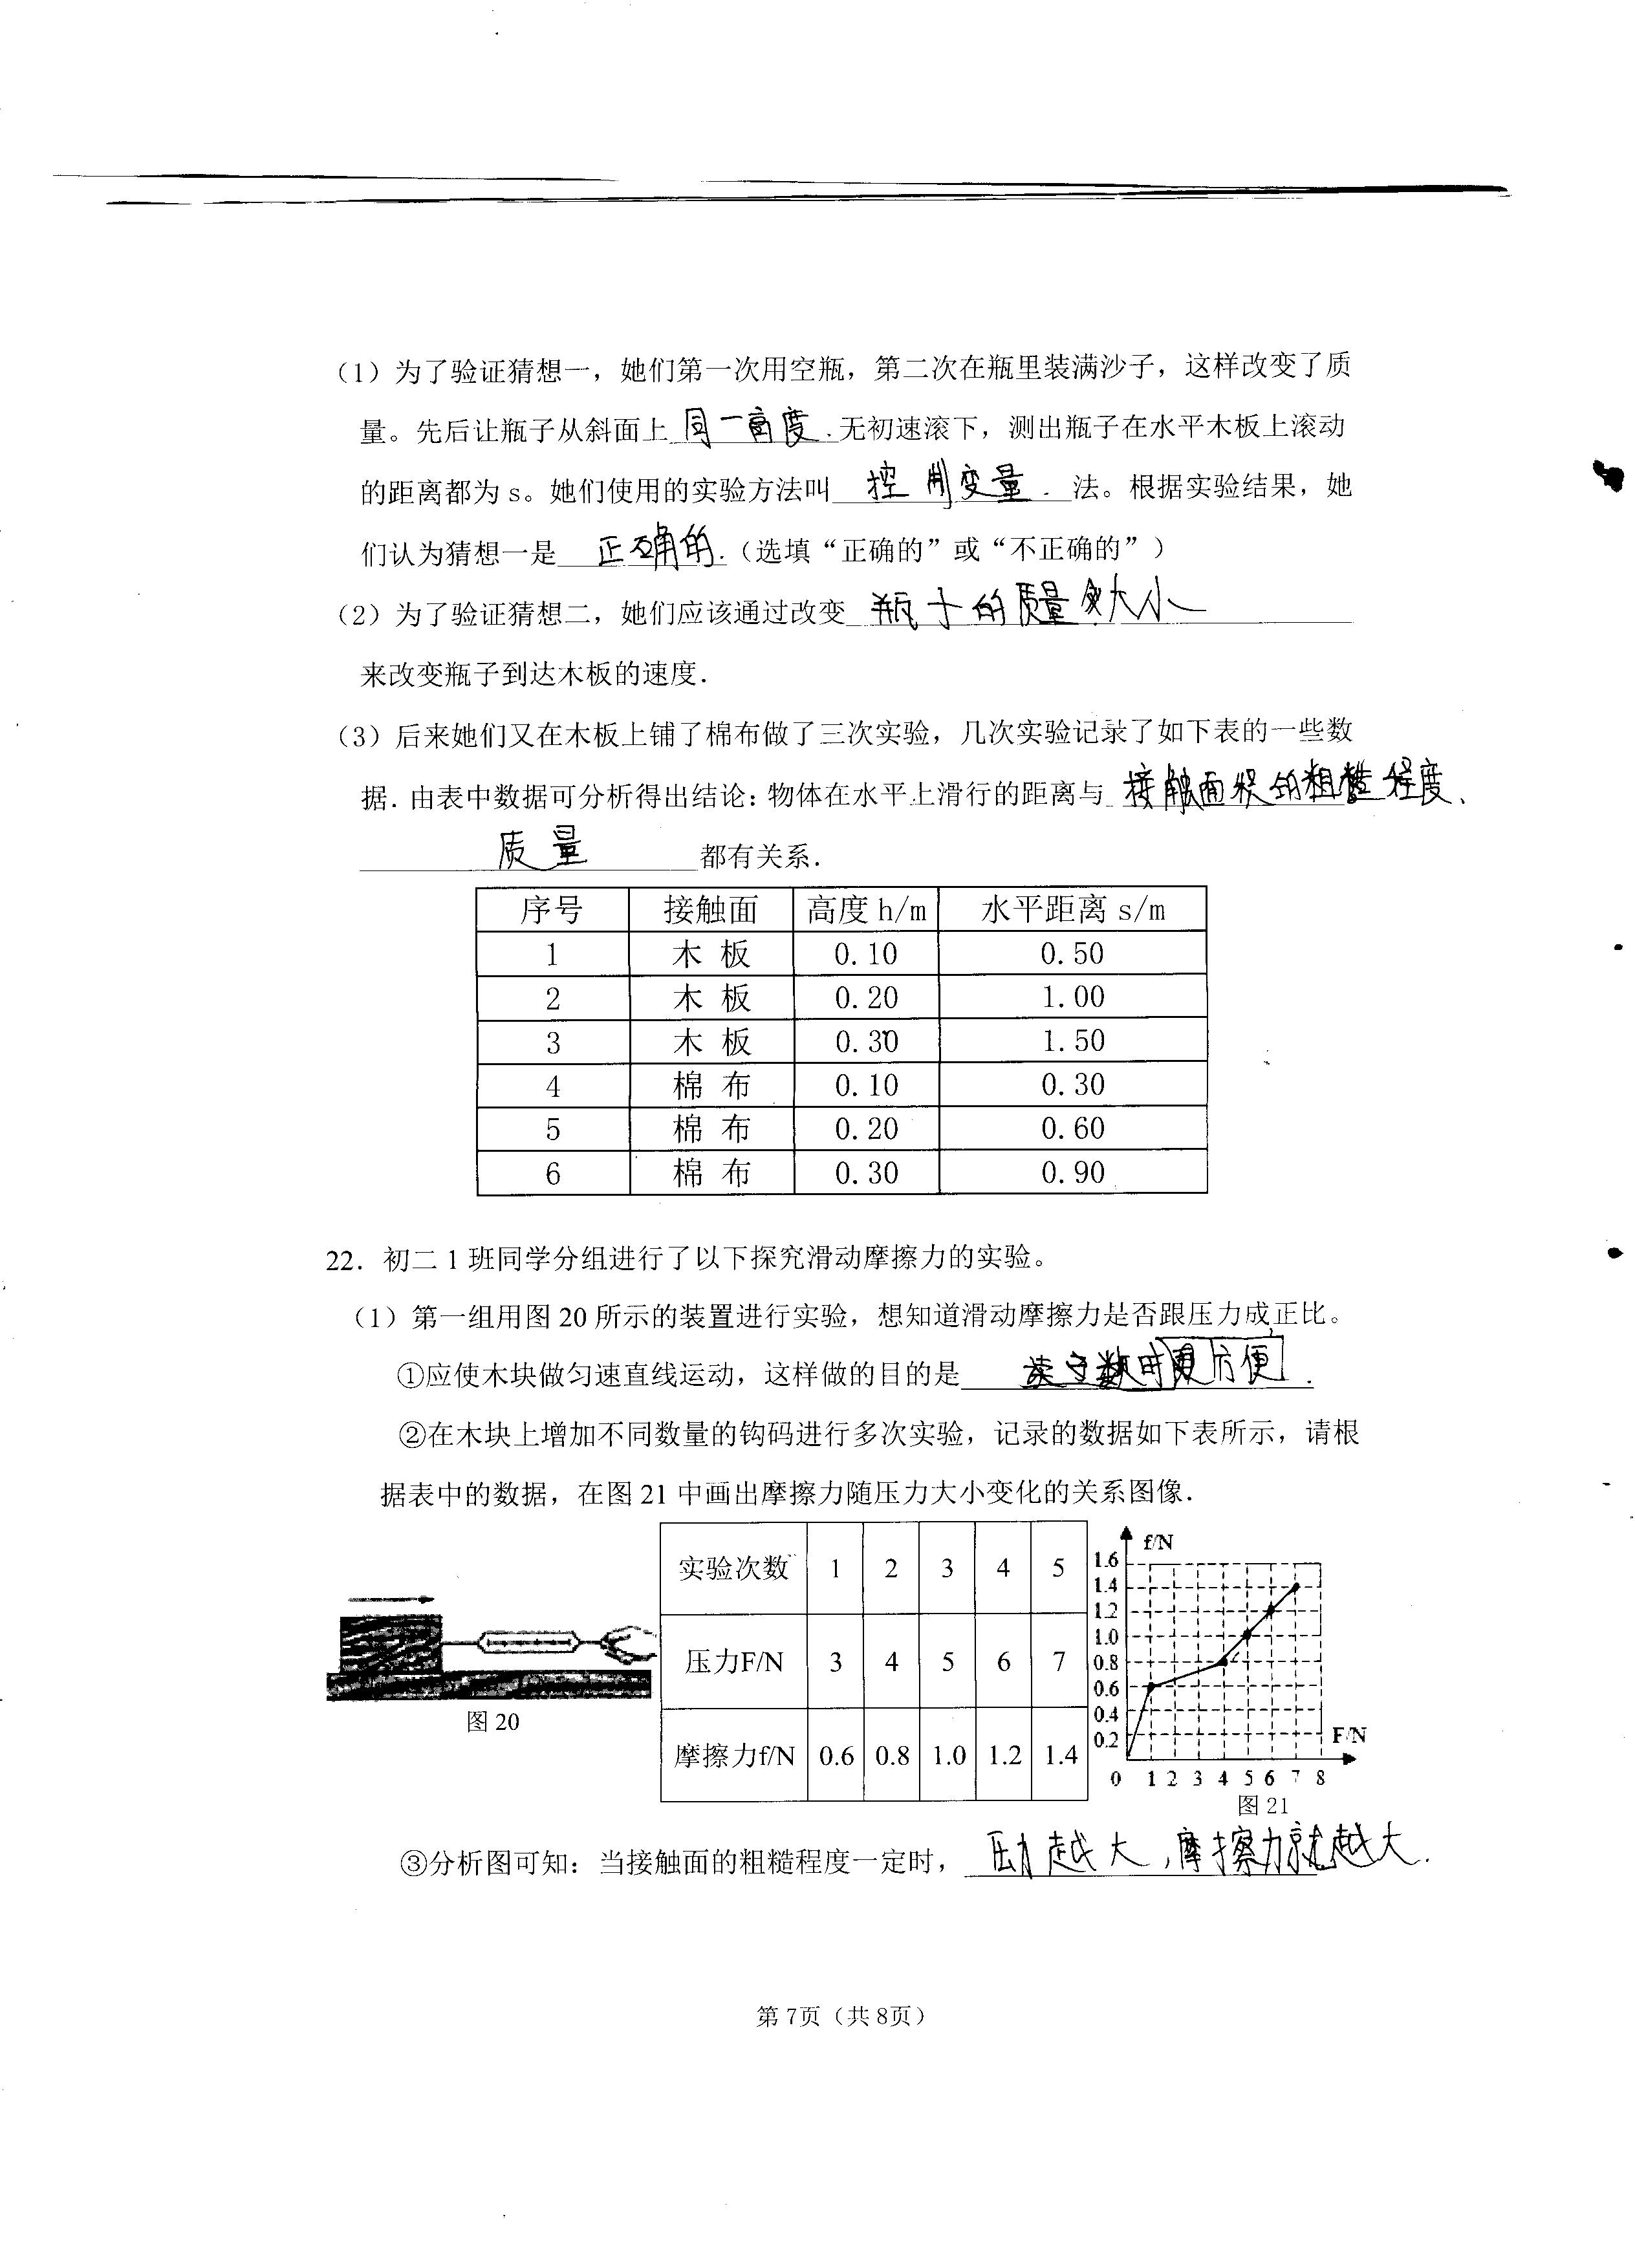 （1）为了验证猜想一，她们第一次用空瓶，第二次在瓶里装满沙子，这样改变了质
量。先后让瓶子从斜面上 同一高度 .无初速滚下，测出瓶子在水平木板上滚动
的距离都为 s。她们使用的实验方法叫 控制变量. 法。根据实验结果，她
们认为猜想一是 正确的.（选填“正确的”或“不正确的”）
（2）为了验证猜想二，她们应该通过改变 瓶子的质量大小
来改变瓶子到达木板的速度．
（3）后来她们又在木板上铺了棉布做了三次实验，几次实验记录了如下表的一些数
据．由表中数据可分析得出结论：物体在水平上滑行的距离与 接触面积的粗糙程度、
质量 都有关系．
序号 接触面 高度 h/m 水平距离 s/m
1 木 板 0.10 0.50
2 木 板 0.20 1.00
3 木 板 0.30 1.50
4 棉 布 0.10 0.30
5 棉 布 0.20 0.60
6 棉 布 0.30 0.90
22．初二 1 班同学分组进行了以下探究滑动摩擦力的实验。
（1）第一组用图 20 所示的装置进行实验，想知道滑动摩擦力是否跟压力成正比。
①应使木块做匀速直线运动，这样做的目的是 数时更方便.
②在木块上增加不同数量的钩码进行多次实验，记录的数据如下表所示，请根
据表中的数据，在图 21 中画出摩擦力随压力大小变化的关系图像．
实验次数 1 2 3 4 5
压力F/N 3 4 5 6 7
摩擦力f/N 0.6 0.8 1.0 1.2 1.4
图 20
f/N
1.6
1.4
1.2
1.0
0.8
0.6
0.4
0.2
F/N
0 1 2 3 4 5 6 7 8
图 21
③分析图可知：当接触面的粗糙程度一定时， 压力越大，摩擦力就越大.
第 7页（共 8页）